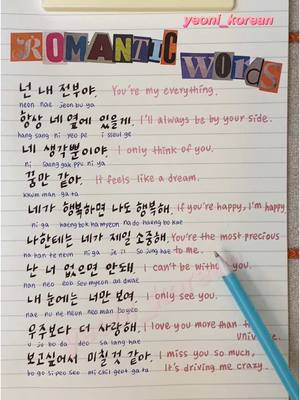 yeoni_korean
ROMANTIC WORDS
넌 내 전부야. You're my everything.
neon nae jeon bu ya
항상 네 옆에 있을게. I'll always be by your side.
hang sang ni yeo pe i sseul ge
네 생각뿐이야. I only think of you.
ni saeng gak ppu ni ya
꿈만 같아. It feels like a dream.
kkum man ga ta
네가 행복하면 나도 행복해. If you're happy, I'm happy.
ni ga haeng bok ha myeon na do haeng bok ae
나한테는 네가 제일 소중해. You're the most precious
na han te neun ni ga je il so jung hae to me.
난 너 없으면 안돼. I can't be without you.
nan neo eop seu myeon an dwae
내 눈에는 너만 보여. I only see you.
nae nu ne neun neo man bo yeo
우주보다 더 사랑해. I love you more than the
u ju bo da deo sa lang hae universe.
보고싶어서 미칠것 같아. I miss you so much,
bo go si peo seo mi chil geot ga ta It's driving me crazy.